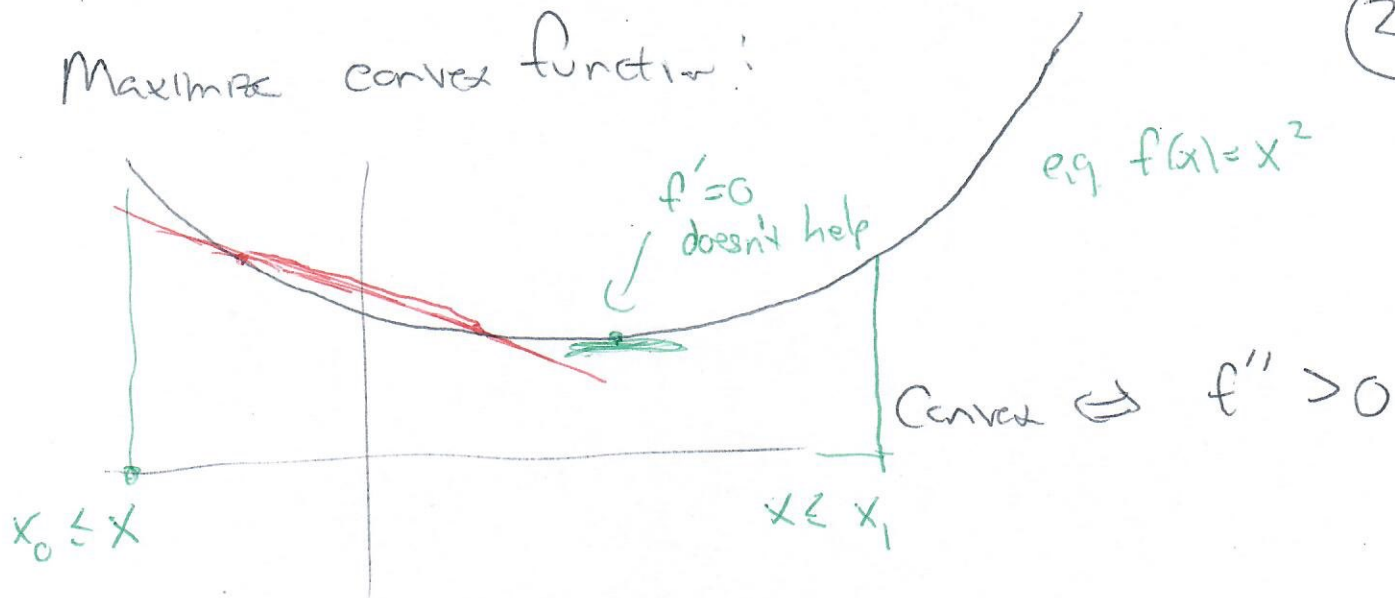 2
Maximize convex function:
e.g. f(x) = x²
f' = 0
doesn't help
Convex ⇔ f'' > 0
x₀ ≤ x
x ≤ x₁